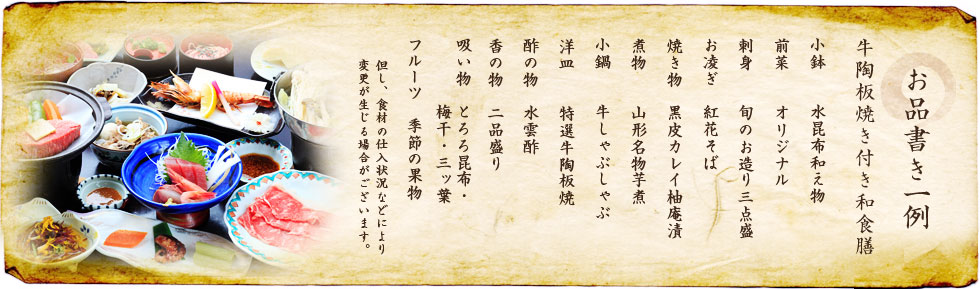 お品書き一例
牛陶板焼き付き和食膳
小鉢　水昆布和え物
前菜　オリジナル
刺身　旬のお造り三点盛
お凌ぎ　紅花そば
焼き物　黒皮カレイ柚庵漬
煮物　山形名物芋煮
小鍋　牛しゃぶしゃぶ
洋皿　特選牛陶板焼
酢の物　水雲酢
香の物　二品盛り
吸い物　とろろ昆布・
梅干・三ッ葉
フルーツ　季節の果物
但し、食材の仕入状況などにより
変更が生じる場合がございます。